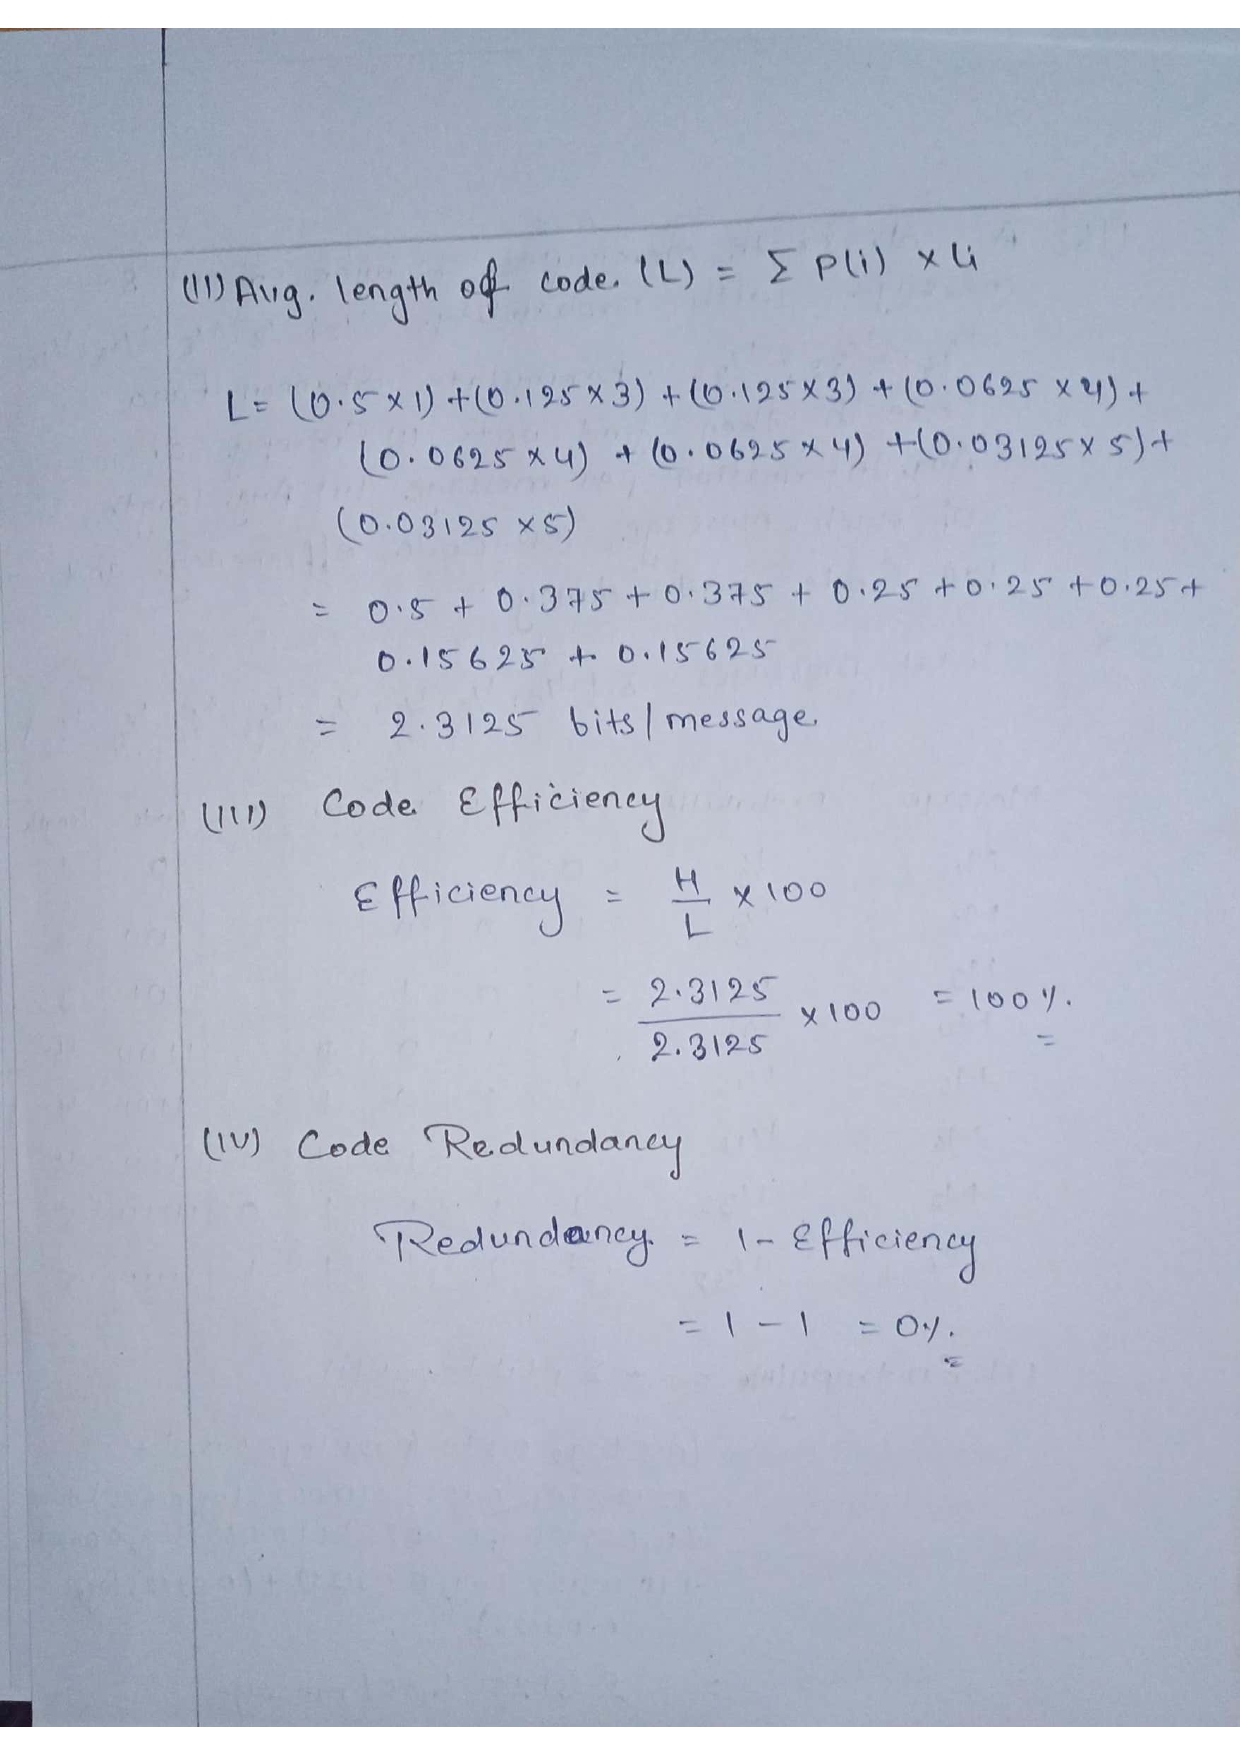 (II) Avg. length of code. (L) = Σ P(i) × Li
L = (0.5 × 1) + (0.125 × 3) + (0.125 × 3) + (0.0625 × 4) +
(0.0625 × 4) + (0.0625 × 4) + (0.03125 × 5) +
(0.03125 × 5)
= 0.5 + 0.375 + 0.375 + 0.25 + 0.25 + 0.25 +
0.15625 + 0.15625
= 2.3125 bits / message
(III) Code Efficiency
Efficiency = H/L × 100
= 2.3125/2.3125 × 100 = 100%.
(IV) Code Redundancy
Redundancy = 1 - Efficiency
= 1 - 1 = 0%.